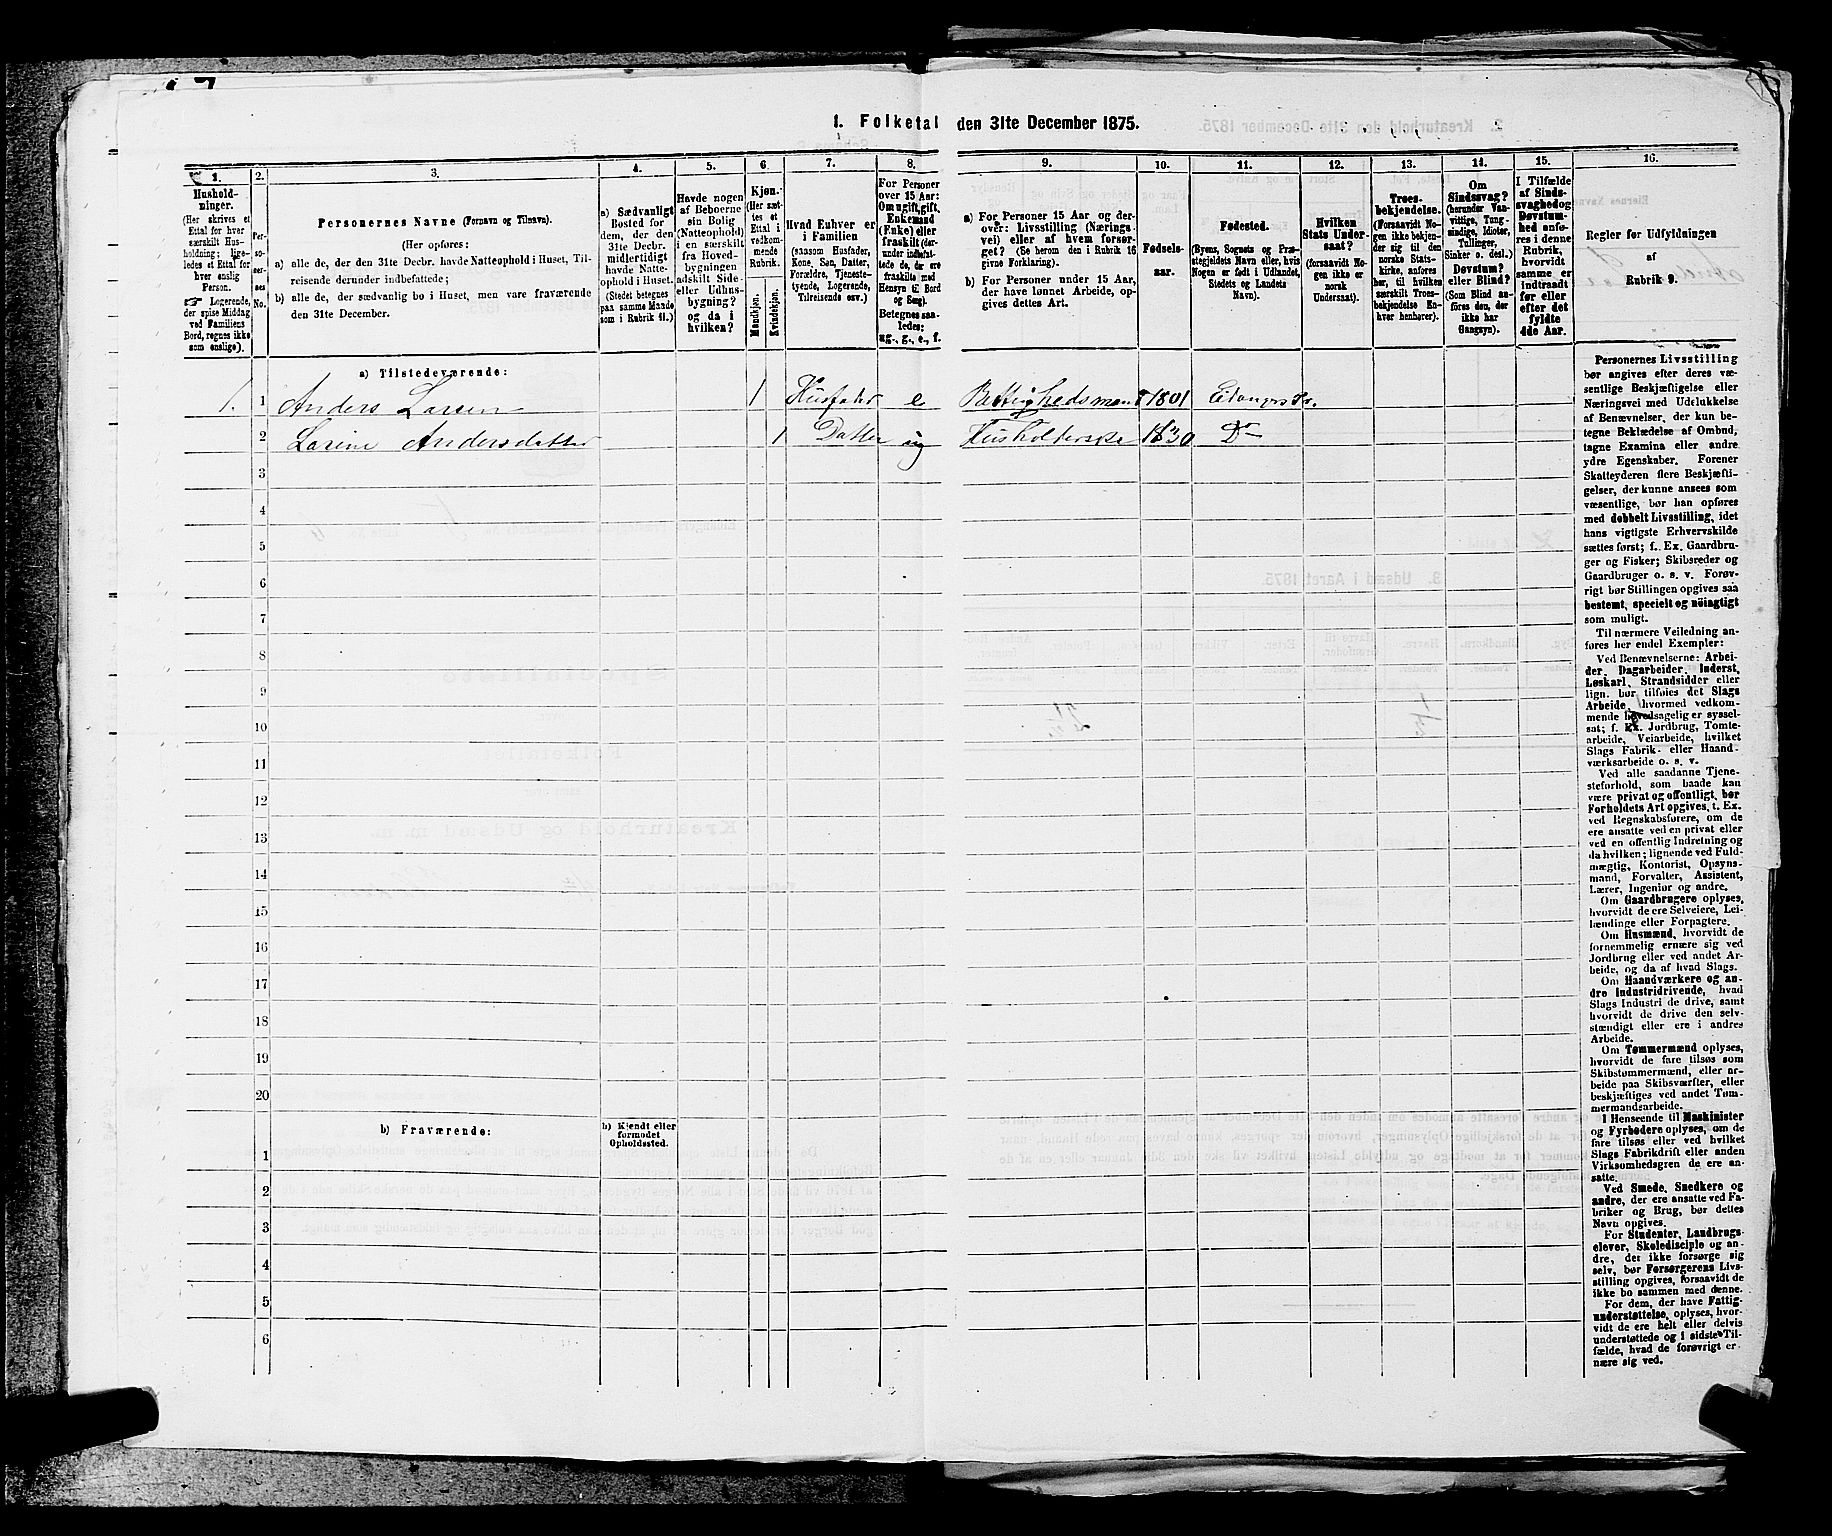 1. Folketal den 31te December 1875.
1.
2.
3.
4.
5.
6.
7.
8.
9.
10.
11.
12.
13.
14.
15.
16.
Hushold-
ninger.
(Her skrives et
Ettal for hver
særskilt Hus-
holdning; lige-
ledes et Ettal for
hver enslig
Person.
☞ Logerende,
der spise Middag
ved Familiens
Bord, regnes ikke
som enslige).
Per-
so-
ner-
nes
No.
Personernes Navne (Fornavn og Tilnavn).
(Her opføres:
a) alle de, der den 31te Decbr. havde Natteophold i Huset, Til-
reisende derunder indbefattede;
b) alle de, der sædvanlig bo i Huset, men vare fraværende
den 31te December.
a) Sædvanligt
Bosted for
dem, der den
31te Decbr.
midlertidigt
havde Natte-
ophold i Huset.
(Stedet betegnes
paa samme Maade
som i Rubrik 11.)
Havde nogen
af Beboerne
sin Bolig
(Natteophold)
i en særskilt
fra Hoved-
bygningen
adskilt Side-
eller Udhus-
bygning?
og da i
hvilken?
Kjøn.
(Her sæt-
tes et
Ettal i
vedkom-
mende
Rubrik.
Mandkjøn.
Kvindekjøn.
Hvad Enhver er
i Familien
(saasom Husfader,
Kone, Søn, Datter,
Forældre, Tjeneste-
tyende, Logerende,
Tilreisende osv.)
For Personer
over 15 Aar:
Om ugift, gift,
Enkemand
(Enke) eller
fraskilt (der-
under indbefat-
tede de, der ere
fraskilte med
Hensyn til Bord
og Seng).
Betegnes saa-
ledes:
ug., g., e., f.
a) For Personer 15 Aar og der-
over: Livsstilling (Nærings-
vei) eller af hvem forsør-
get? (Se herom den i Rubrik 16
givne Forklaring).
b) For Personer under 15 Aar,
der have lønnet Arbeide, op-
gives dettes Art.
Fødsels-
aar.
Fødested.
(Byens, Sognets og Præ-
stegjeldets Navn eller, hvis
Nogen er født i Udlandet,
Stedets og Landets
Navn).
Hvilken
Stats Under-
saat?
(forsaavidt No-
gen ikke er
norsk
Undersaat).
Troes-
bekjendelse.
(Forsaavidt No-
gen ikke bekjen-
der sig til den
norske Stats-
kirke, anføres
her, til hvilken
særskilt Troes-
bekjendelse En-
hver henhører).
Om
Sindssvag?
(herunder Van-
vittige, Tung-
sindige, Idioter,
Tullinger,
Sinker o. desl.)
Døvstum?
eller Blind?
(Som Blind an-
føres den, der
ikke har
Gangsyn).
I Tilfælde
af Sinds-
svaghed og
Døvstum-
hed anfø-
res i denne
Rubrik,
hvorvidt
samme er
indtraadt
før eller
efter det
fyldte
4de Aar.
Regler for Udfyldningen
af
Rubrik 9.
a) Tilstedeværende:
1. 1 Anders Larsen 1 Husfader e 1801
2 Larine Andersdatter 1 Datter ug Husholderske 1830 Do
3
4
5
6
7
8
9
10
11
12
13
14
15
16
17
18
19
20
b) Fraværende:
b) Kjendt eller
formodet
Opholdssted.
1
2
3
4
5
6
Personernes Livsstilling
bør angives efter deres væ-
sentlige Beskjæftigelse eller
Næringsvei med Udelukkelse
af Benævnelser, der kun be-
tegne Beklædelse af Ombud,
tagne Examina eller andre
ydre Egenskaber. Forener
Skatteyderen flere Beskjæfti-
gelser, der kunne ansees som
væsentlige, bør han opføres
med dobbelt Livsstilling, idet
hans vigtigste Erhvervskilde
sættes først; f. Ex. Gaardbru-
ger og Fisker; Skibsreder og
Gaardbruger o. s. v. Forøv-
rigt bør Stillingen opgives saa
bestemt, specielt og nöiagtigt
som muligt.
Til nærmere Veiledning an-
føres her endel Exempler:
Ved Benævnelserne: Arbei-
der, Dagarbeider, Inderst,
Løskarl, Strandsidder eller
lign. bør tilføies det Slags
Arbeide, hvormed vedkom-
mende hovedsagelig er syssel-
sat; f. Ex. Jordbrug, Tomte-
arbeide, Veiarbeide, hvilket
Slags Fabrik- eller Haand-
værksarbeide o. s. v.
Ved alle saadanne Tjene-
steforhold, som baade kan
være privat og offentligt, bør
Forholdets Art opgives, t. Ex.
ved Regnskabsførere, om de
ere ansatte ved en privat eller
ved en offentlig Indretning og
da hvilken; lignende ved Fuld-
mægtig, Kontorist, Opsyns-
mand, Forvalter, Assistent,
Lærer, Ingeniør og andre.
Om Gaardbrugere oplyses,
hvorvidt de ere Selveiere, Lei-
lændinge eller Forpagtere.
Om Husmænd, hvorvidt de
fornemmelig ernære sig ved
Jordbrug eller ved andet Ar-
beide, og da af hvad Slags.
Om Haandværkere og an-
dre Industridrivende, hvad
Slags Industri de drive, samt
hvorvidt de drive den selv-
stændigt eller ere i andres
Arbeide.
Om Tømmermænd oplyses,
hvorvidt de fare tilsøs som
Skibstømmermænd, eller ar-
beide paa Skibsværfter, eller
beskjæftiges ved andet Tøm-
mermandsarbeide.
I Henseende til Maskinister
og Fyrbødere oplyses, om de
fare tilsøs eller ved hvilket
Slags Fabrikdrift eller anden
Virksomhedsgren de ere an-
satte.
Ved Smede, Snedkere og
andre, der ere ansatte ved Fa-
briker og Brug, bør dettes
Navn opgives.
For Studenter, Landbrugs-
elever, Skoledisciple og an-
dre, der ikke forsørge sig
selv, bør Forsørgerens Livs-
stilling opgives, forsaavidt de
ikke bo sammen med denne.
For dem, der have Fattig-
understøttelse, oplyses, hvor-
vidt de ere helt eller delvis
understøttede og i sidste Til-
fælde, hvad de forøvrigt er-
nære sig ved.